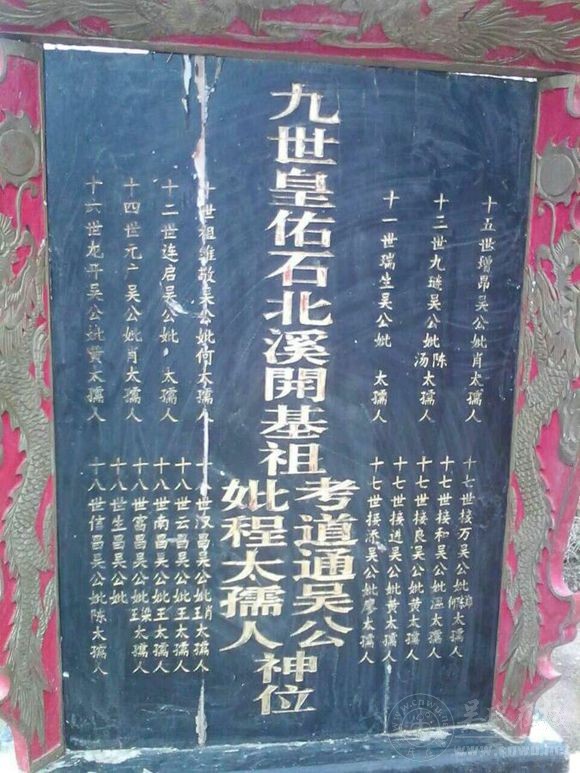 十五世增昂吴公妣肖太孺人
十三世九琏吴公妣陈汤太孺人
十一世瑞生吴公妣 太孺人
十七世接万吴公妣 太孺人
十七世接和吴公妣温太孺人
十七世接良吴公妣黄太孺人
十七世接进吴公妣黄太孺人
十七世接添吴公妣廖太孺人
九世皇佑石北溪開基祖
考道通吴公
妣程太孺人
神位
十世祖维敬吴公妣何太孺人
十二世连启吴公妣 太孺人
十四世元二吴公妣肖太孺人
十六世龙平吴公妣黄太孺人
十八世汉昌吴公妣肖王太孺人
十八世云昌吴公妣王太孺人
十八世南昌吴公妣王太孺人
十八世富昌吴公妣梁王太孺人
十八世生昌吴公妣
十八世信昌吴公妣陈太孺人